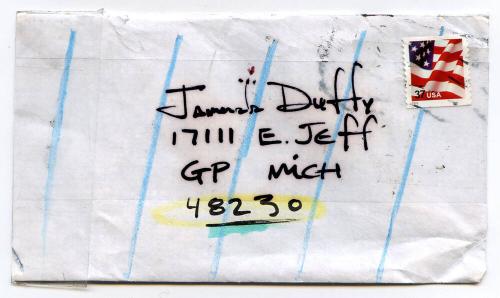 37 USA
Duffy
17111 E. Jeff
GP Mich
48230